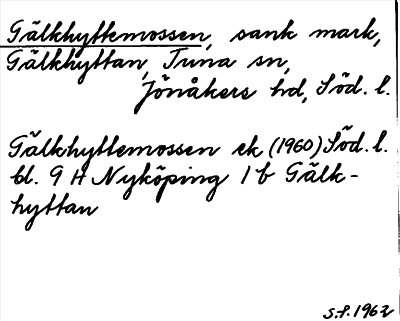 Gälkhyttemossen, sank mark,
Gälkhyttan, Tuna sn,
Jönåkers hd, Söd. l.
Gälkhyttemossen ek (1960) Söd. l.
bl. 9 H Nyköping 1 b Gälk-
hyttan
S.P. 1962